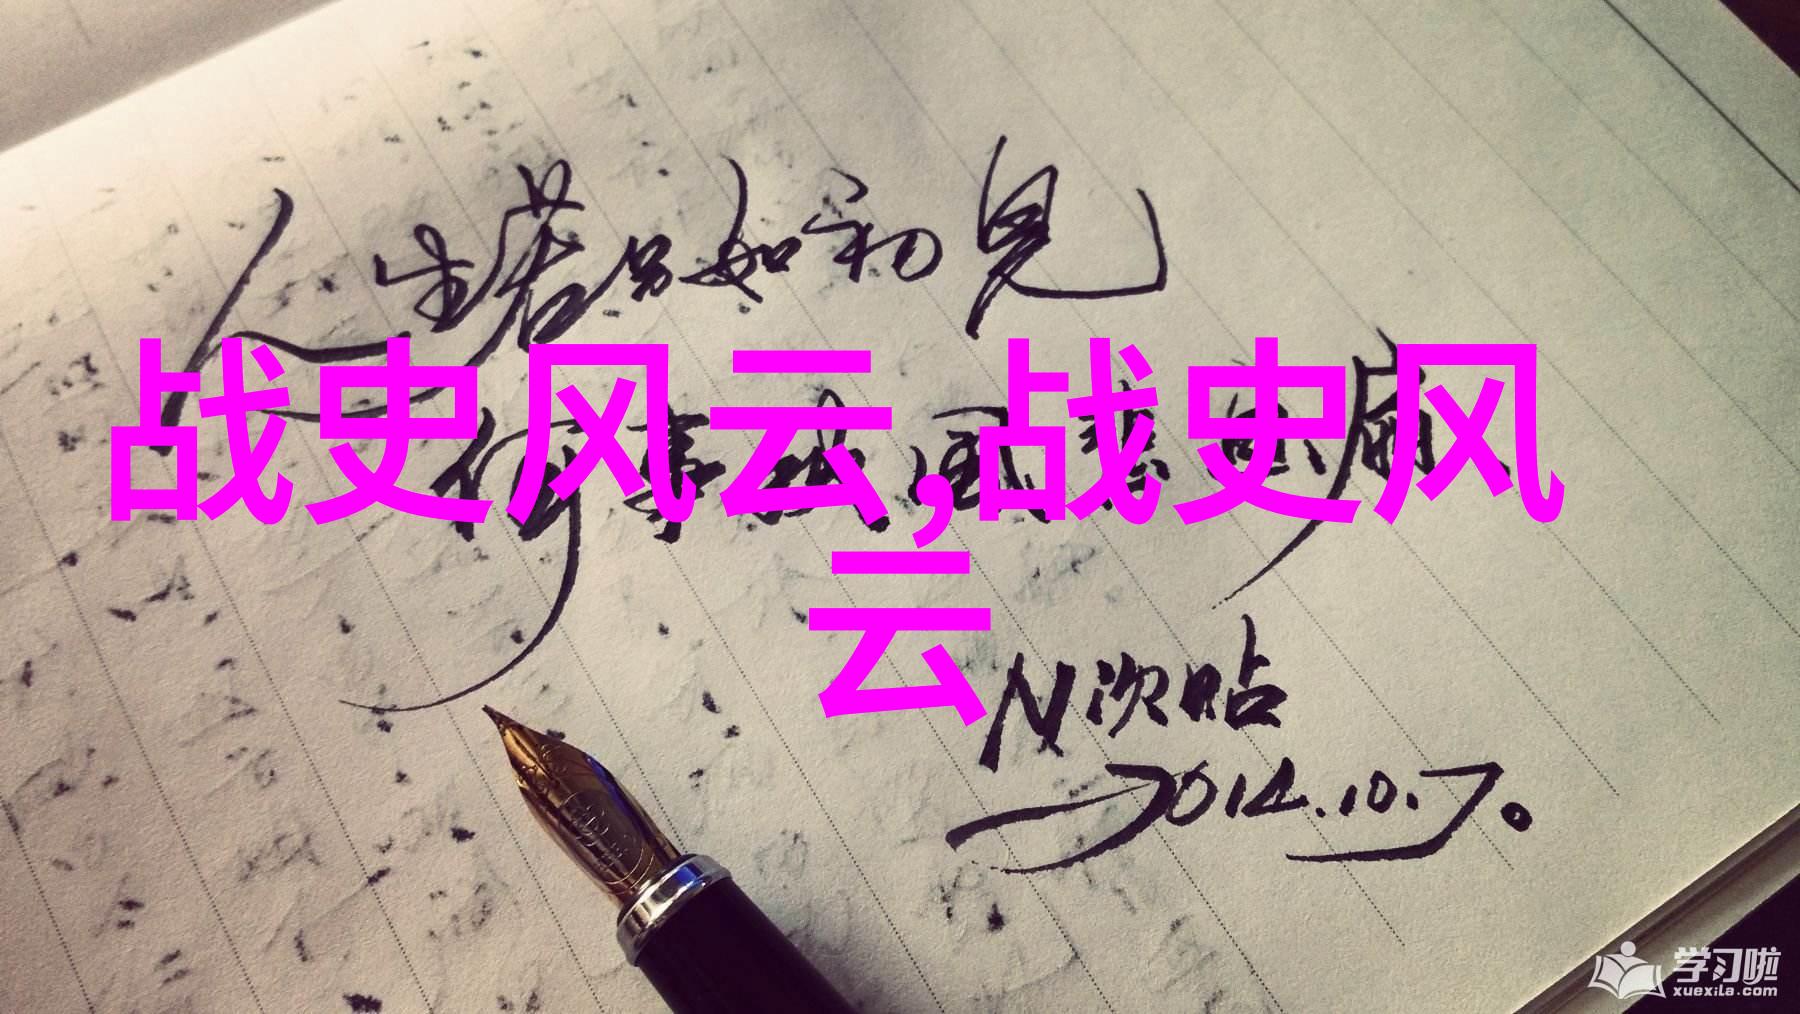 人生若只如初见
战史风云,战史风
何事秋风悲画扇
云
N次贴
2014.10.7。
学习啦
xuexila.com